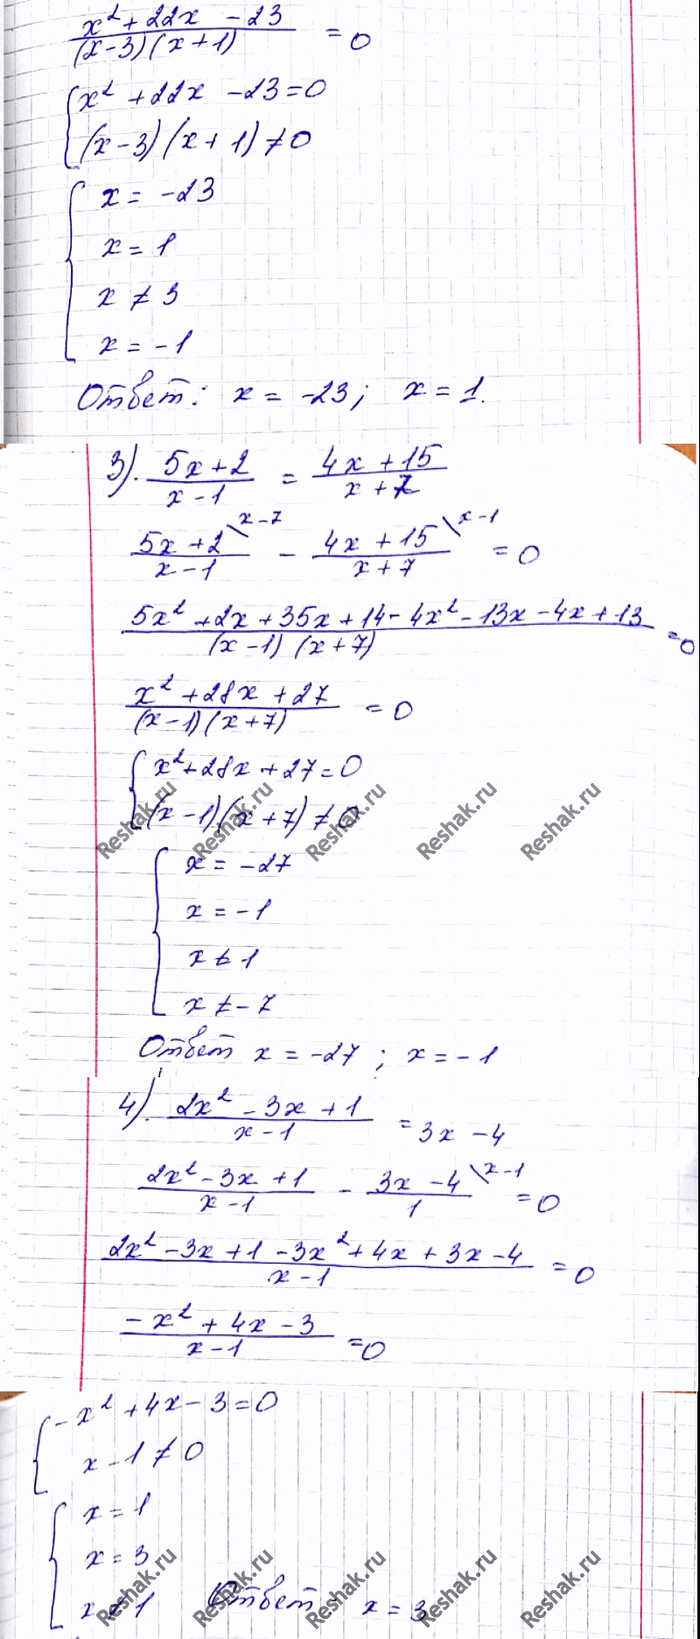 x² + 22x - 23 / (x-3)(x+1) = 0
{ x² + 22x - 23 = 0
(x-3)(x+1) ≠ 0
{ x = -23
x = 1
x ≠ 3
x = -1
Ответ: x = -23; x = 1.
3). 5x+2 / x-1 = 4x+15 / x+7
5x+2 / x-1 \x-7 - 4x+15 / x+7 \x-1 = 0
5x² + 2x + 35x + 14 - 4x² - 13x - 4x + 13 / (x-1)(x+7) = 0
x² + 28x + 27 / (x-1)(x+7) = 0
{ x² + 28x + 27 = 0
(x-1)(x+7) ≠ 0
Reshak.ru Reshak.ru Reshak.ru Reshak.ru Reshak.ru
{ x = -27
x = -1
x ≠ 1
x ≠ -7
Ответ x = -27; x = -1
4). 2x² - 3x + 1 / x-1 = 3x - 4
2x² - 3x + 1 / x-1 - 3x-4 / 1 \x-1 = 0
2x² - 3x + 1 - 3x² + 4x + 3x - 4 / x-1 = 0
-x² + 4x - 3 / x-1 = 0
{ -x² + 4x - 3 = 0
x - 1 ≠ 0
{ x = 1
x = 3
x ≠ 1 Ответ x = 3
Reshak.ru Reshak.ru Reshak.ru Reshak.ru Reshak.ru